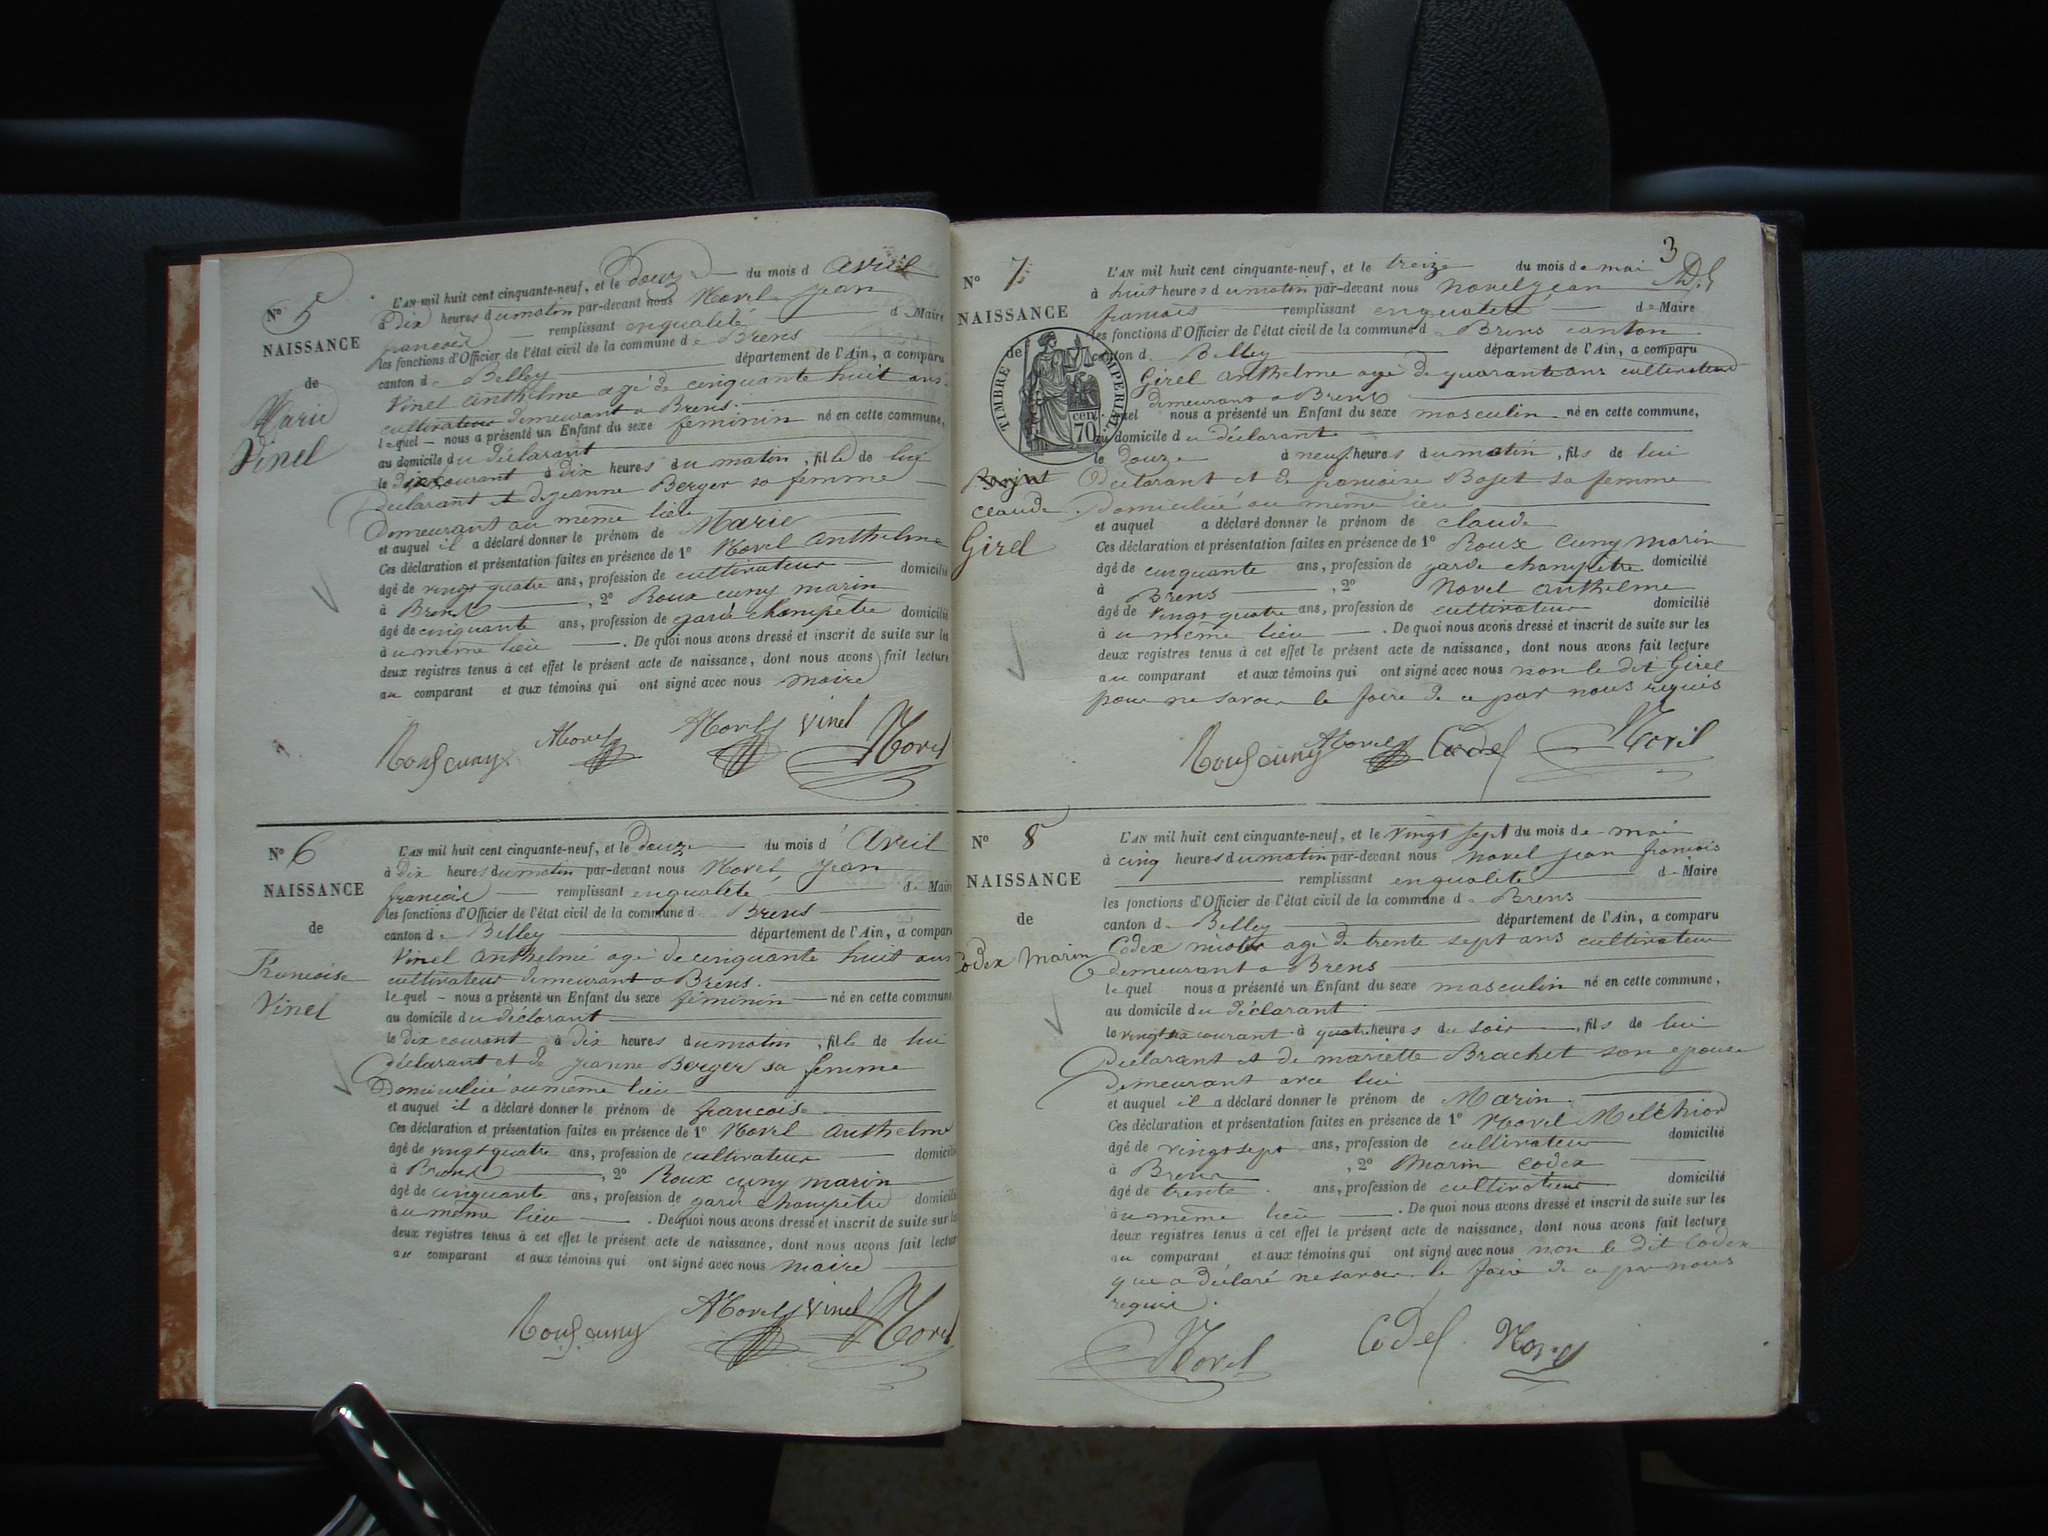 N° 5
NAISSANCE
de
Marie
Vinel
L'AN mil huit cent cinquante-neuf, et le douze du mois d'avril
à dix heures du matin par-devant nous Novel Jean
françois remplissant en qualité de Maire
les fonctions d'Officier de l'état civil de la commune de Brens
canton de Belley département de l'Ain, a comparu
Vinel anthelme agé de cinquante huit ans
cultivateur demeurant a Brens.
lequel nous a présenté un Enfant du sexe feminin né en cette commune,
au domicile du déclarant
le dix courant à dix heures du matin, fille de lui
déclarant et de jeanne Berger sa femme
Demeurant au même lieu
et auquel il a déclaré donner le prénom de Marie
Ces déclaration et présentation faites en présence de 1° Novel anthelme
âgé de vingt quatre ans, profession de cultivateur domicilié
à Brens, 2° Roux cuny marin
âgé de cinquante ans, profession de garde champêtre domicilié
au même lieu. De quoi nous avons dressé et inscrit de suite sur les
deux registres tenus à cet effet le présent acte de naissance, dont nous avons fait lecture
au comparant et aux témoins qui ont signé avec nous maire
Roux cuny Novel Novel Vinel Novel
N° 6
NAISSANCE
de
Francoise
Vinel
L'AN mil huit cent cinquante-neuf, et le douze du mois d'avril
à dix heures du matin par-devant nous Novel Jean
françois remplissant en qualité de Maire
les fonctions d'Officier de l'état civil de la commune de Brens
canton de Belley département de l'Ain, a comparu
Vinel anthelme agé de cinquante huit ans
cultivateur demeurant a Brens.
lequel nous a présenté un Enfant du sexe féminin né en cette commune
au domicile du déclarant
le dix courant à dix heures du matin, fille de lui
déclarant et de jeanne Berger sa femme
Domicilié au même lieu
et auquel il a déclaré donner le prénom de francoise
Ces déclaration et présentation faites en présence de 1° Novel Anthelme
âgé de vingt quatre ans, profession de cultivateur domicilié
à Brens, 2° Roux cuny marin
âgé de cinquante ans, profession de garde champêtre domicilié
au même lieu. De quoi nous avons dressé et inscrit de suite sur les
deux registres tenus à cet effet le présent acte de naissance, dont nous avons fait lecture
au comparant et aux témoins qui ont signé avec nous maire
Roux cuny Novel Vinel Novel
3
N° 7
NAISSANCE
de
TIMBRE IMPERIAL
70 cen.
claude
Girel
L'AN mil huit cent cinquante-neuf, et le treize du mois de mai
à huit heures du matin par-devant nous Novel jean
francois remplissant en qualité de Maire
les fonctions d'Officier de l'état civil de la commune de Brens canton
canton de Belley département de l'Ain, a comparu
Girel anthelme agé de quarante ans cultivateur
demeurant a Brens
lequel nous a présenté un Enfant du sexe masculin né en cette commune,
au domicile du déclarant
le douze à neuf heures du matin, fils de lui
déclarant et de francoise Bajet sa femme
domicilié au même lieu
et auquel a déclaré donner le prénom de claude
Ces déclaration et présentation faites en présence de 1° Roux cuny marin
âgé de cinquante ans, profession de garde champêtre domicilié
à Brens, 2° Novel anthelme
âgé de vingt quatre ans, profession de cultivateur domicilié
au même lieu. De quoi nous avons dressé et inscrit de suite sur les
deux registres tenus à cet effet le présent acte de naissance, dont nous avons fait lecture
au comparant et aux témoins qui ont signé avec nous non le dit Girel
pour ne savoir le faire de ce par nous requis
Roux cuny Novel Codex Novel
N° 8
NAISSANCE
de
Codex Marin
L'AN mil huit cent cinquante-neuf, et le vingt sept du mois de mai
à cinq heures du matin par-devant nous Novel jean francois
remplissant en qualité de Maire
les fonctions d'Officier de l'état civil de la commune de Brens
canton de Belley département de l'Ain, a comparu
Codex agé de trente sept ans cultivateur
demeurant a Brens
lequel nous a présenté un Enfant du sexe masculin né en cette commune,
au domicile du déclarant
le courant à quatre heures du soir, fils de lui
déclarant et de mariette Brachet son epouse
demeurant avec lui
et auquel il a déclaré donner le prénom de Marin.
Ces déclaration et présentation faites en présence de 1° Novel Melchior
âgé de vingt sept ans, profession de cultivateur domicilié
à Brens, 2° Marin codex
âgé de trente ans, profession de cultivateur domicilié
au même lieu. De quoi nous avons dressé et inscrit de suite sur les
deux registres tenus à cet effet le présent acte de naissance, dont nous avons fait lecture
au comparant et aux témoins qui ont signé avec nous non le dit Codex
que a déclaré ne savoir le faire de ce par nous
requis.
Novel Codex Novel